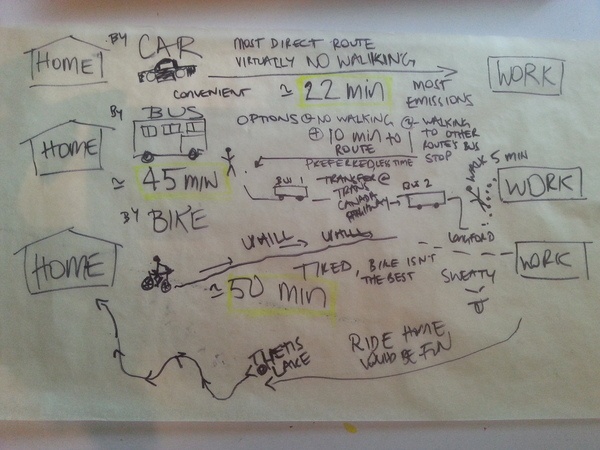 HOME
BY CAR
MOST DIRECT ROUTE
VIRTUALLY NO WALKING
CONVENIENT
≈ 22 min
MOST
EMISSIONS
WORK
BY BUS
HOME
≈ 45 MIN
OPTIONS NO WALKING
10 min to
ROUTE
PREFERRED
TIME
WALKING
TO OTHER
ROUTES BUS
STOP
BUS 1
TRANSFER @
TRANS
CANADA
BUS 2
WALK 5 MIN
LANGFORD
WORK
BY BIKE
HOME
UHILL
UHILL
≈ 50 min
TIRED, BIKE ISN'T
THE BEST
SWEATY
WORK
THETIS
LAKE
RIDE HOME
WOULD BE FUN